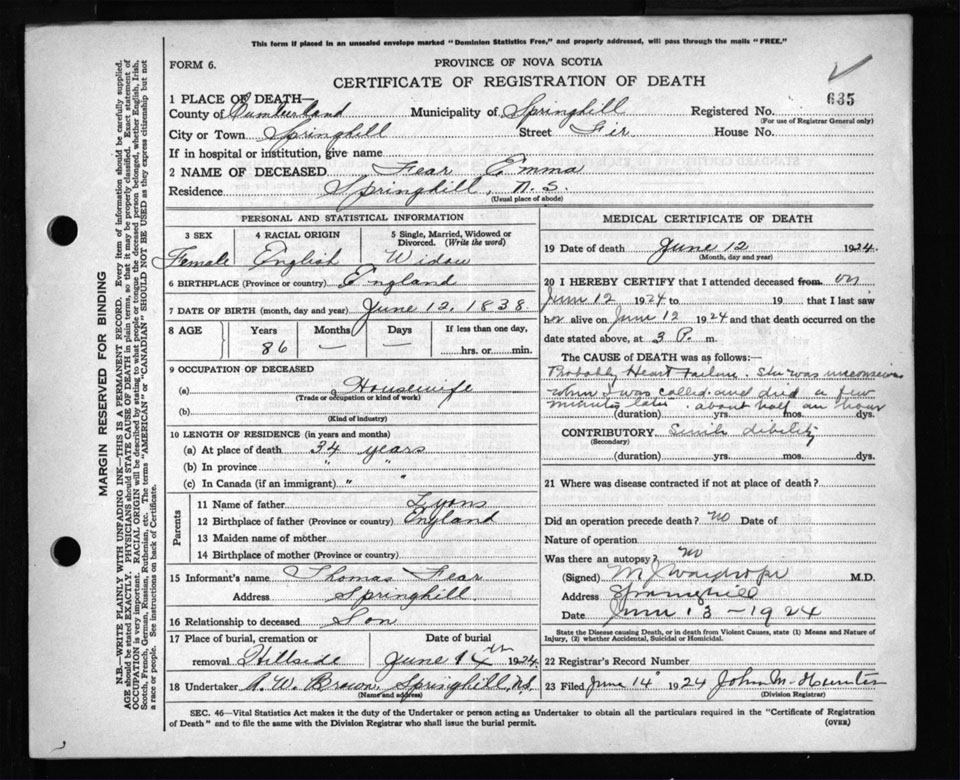 This form if placed in an unsealed envelope marked "Dominion Statistics Free," and properly addressed, will pass through the mails "FREE."
FORM 6.
PROVINCE OF NOVA SCOTIA
CERTIFICATE OF REGISTRATION OF DEATH
1 PLACE OF DEATH—
County of Cumberland Municipality of Springhill Registered No. 635
(For use of Registrar General only)
City or Town Springhill Street Fer House No.
If in hospital or institution, give name
2 NAME OF DECEASED Fear Emma
Residence Springhill, N.S.
(Usual place of abode)
PERSONAL AND STATISTICAL INFORMATION
3 SEX 4 RACIAL ORIGIN 5 Single, Married, Widowed or Divorced. (Write the word)
Female English Widow
6 BIRTHPLACE (Province or country) England
7 DATE OF BIRTH (month, day and year) June 12, 1838.
8 AGE Years Months Days If less than one day,
86 — — ......hrs. or ......min.
9 OCCUPATION OF DECEASED
(a) Housewife
(Trade or occupation or kind of work)
(b)
(Kind of industry)
10 LENGTH OF RESIDENCE (in years and months)
(a) At place of death 34 years
(b) In province " "
(c) In Canada (if an immigrant) " "
Parents
11 Name of father Lyons
12 Birthplace of father (Province or country) England
13 Maiden name of mother
14 Birthplace of mother (Province or country)
15 Informant's name Thomas Fear
Address Springhill
16 Relationship to deceased Son
17 Place of burial, cremation or removal Hillside Date of burial June 14th 1924.
18 Undertaker A. W. Brown, Springhill, N.S.
(Name and address)
MEDICAL CERTIFICATE OF DEATH
19 Date of death June 12 1924.
(Month, day and year)
20 I HEREBY CERTIFY that I attended deceased from on
June 12 1924 to 19 that I last saw
her alive on June 12 1924 and that death occurred on the
date stated above, at 3 P. m.
The CAUSE of DEATH was as follows:
Probably Heart Failure. She was unconscious
when I was called and died a few
minutes later. about half an hour
(duration) yrs. mos. dys.
CONTRIBUTORY Senile debility
(Secondary)
(duration) yrs. mos. dys.
21 Where was disease contracted if not at place of death?
Did an operation precede death? No Date of
Nature of operation
Was there an autopsy? No
(Signed) M J Wardrope M.D.
Address Springhill
Date June 13 - 1924
State the Disease causing Death, or in death from Violent Causes, state (1) Means and Nature of
Injury, (2) whether Accidental, Suicidal or Homicidal.
22 Registrar's Record Number
23 Filed June 14 1924 John M. Hunter
(Division Registrar)
SEC. 46—Vital Statistics Act makes it the duty of the Undertaker or person acting as Undertaker to obtain all the particulars required in the "Certificate of Registration
of Death" and to file the same with the Division Registrar who shall issue the burial permit.
(OVER)
MARGIN RESERVED FOR BINDING
N.B.—WRITE PLAINLY WITH UNFADING INK—THIS IS A PERMANENT RECORD. Every item of information should be carefully supplied.
AGE should be stated EXACTLY. PHYSICIANS should STATE CAUSE OF DEATH in plain terms, so that it may be properly classified. Exact statement of
OCCUPATION is very important. RACIAL ORIGIN will be described by stating to what people or tongue the deceased person belonged, whether English, Irish,
Scotch, French, German, Russian, Ruthenian, etc. The terms "AMERICAN" or "CANADIAN" SHOULD NOT BE USED as they express citizenship but not
a race or people. See instructions on back of Certificate.